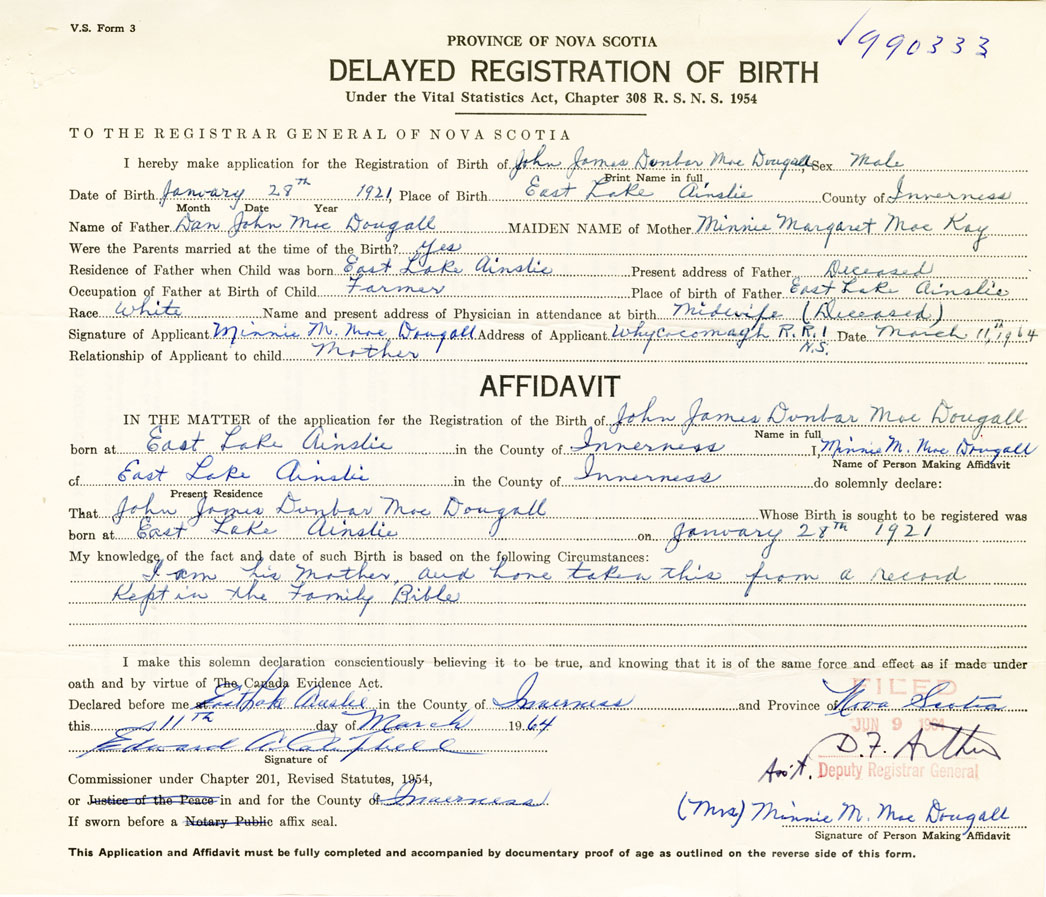 V.S. Form 3
√990333
PROVINCE OF NOVA SCOTIA
DELAYED REGISTRATION OF BIRTH
Under the Vital Statistics Act, Chapter 308 R. S. N. S. 1954
TO THE REGISTRAR GENERAL OF NOVA SCOTIA
I hereby make application for the Registration of Birth of John James Dunbar Mac Dougall, Sex Male
Print Name in full
Date of Birth January 28th 1921, Place of Birth East Lake Ainslie County of Inverness
Month Date Year
Name of Father Dan John Mac Dougall MAIDEN NAME of Mother Minnie Margaret Mac Kay
Were the Parents married at the time of the Birth? Yes
Residence of Father when Child was born East Lake Ainslie Present address of Father Deceased
Occupation of Father at Birth of Child Farmer Place of birth of Father East Lake Ainslie
Race White Name and present address of Physician in attendance at birth Midwife (Deceased)
Signature of Applicant Minnie M. Mac Dougall Address of Applicant Whycocomagh R.R.1 N.S. Date March 11th, 1964
Relationship of Applicant to child Mother
AFFIDAVIT
IN THE MATTER of the application for the Registration of the Birth of John James Dunbar Mac Dougall
Name in full
born at East Lake Ainslie in the County of Innerness I, Minnie M. Mac Dougall
Name of Person Making Affidavit
of East Lake Ainslie in the County of Innerness do solemnly declare:
Present Residence
That John James Dunbar Mac Dougall Whose Birth is sought to be registered was
born at East Lake Ainslie on January 28th 1921
My knowledge of the fact and date of such Birth is based on the following Circumstances:
I am his Mother, and have taken this from a record
Kept in the Family Bible
I make this solemn declaration conscientiously believing it to be true, and knowing that it is of the same force and effect as if made under
oath and by virtue of The Canada Evidence Act.
Declared before me at East Lake Ainslie in the County of Inverness and Province of Nova Scotia
FILED
this 11th day of March 1964
JUN 9 1964
Edward A Campbell
Signature of
D.F. Arthur
Ass't. Deputy Registrar General
Commissioner under Chapter 201, Revised Statutes, 1954,
or Justice of the Peace in and for the County of Inverness.
(Mrs) Minnie M. Mac Dougall
If sworn before a Notary Public affix seal.
Signature of Person Making Affidavit
This Application and Affidavit must be fully completed and accompanied by documentary proof of age as outlined on the reverse side of this form.